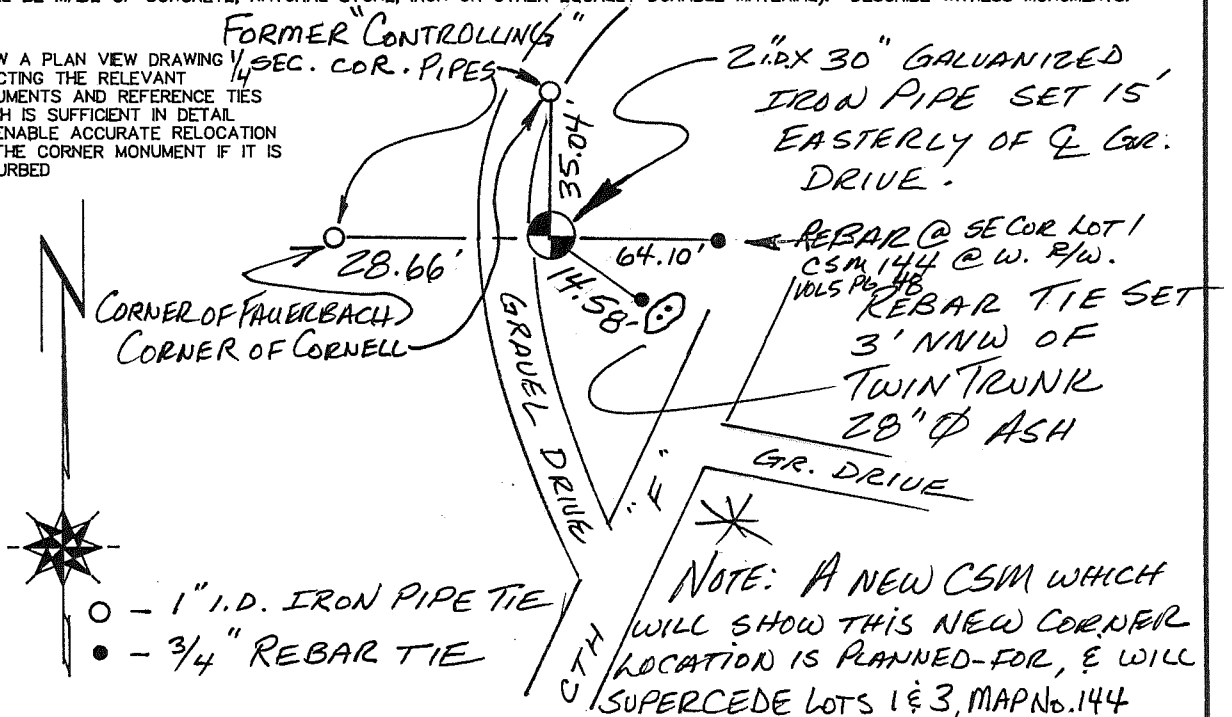 FORMER "CONTROLLING"
1/4 SEC. COR. PIPES
W A PLAN VIEW DRAWING
CTING THE RELEVANT
UMENTS AND REFERENCE TIES
H IS SUFFICIENT IN DETAIL
ENABLE ACCURATE RELOCATION
THE CORNER MONUMENT IF IT IS
URBED
2"I.D. X 30" GALVANIZED
IRON PIPE SET 15'
EASTERLY OF ℄ GR.
DRIVE.
35.04'
28.66'
64.10'
14.58
REBAR @ SE COR LOT 1
CSM 144 @ W. R/W.
VOL 5 PG 48
REBAR TIE SET
3' NNW OF
TWIN TRUNK
28" Ø ASH
CORNER OF FAUERBACH
CORNER OF CORNELL
GRAVEL DRIVE
GR. DRIVE
CTH "F"
○ - 1" I.D. IRON PIPE TIE
● - 3/4" REBAR TIE
NOTE: A NEW CSM WHICH
WILL SHOW THIS NEW CORNER
LOCATION IS PLANNED-FOR, & WILL
SUPERCEDE LOTS 1 & 3, MAP No. 144